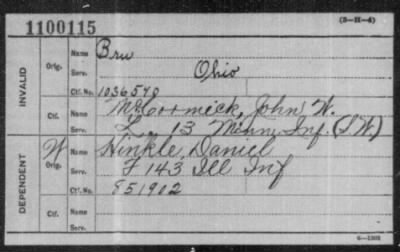 1100115 (3-H-4)
INVALID
Orig. Name Bru
Serv. Ohio
Ctf. No. 1036578
Ctf. Name McCormick, John W.
Serv. L, 13 Minn. Inf. (S.W)
DEPENDENT
W Orig. Name Hinkle, Daniel
Serv. F 143 Ill Inf
Ctf. No. 851902
Ctf. Name
Serv.